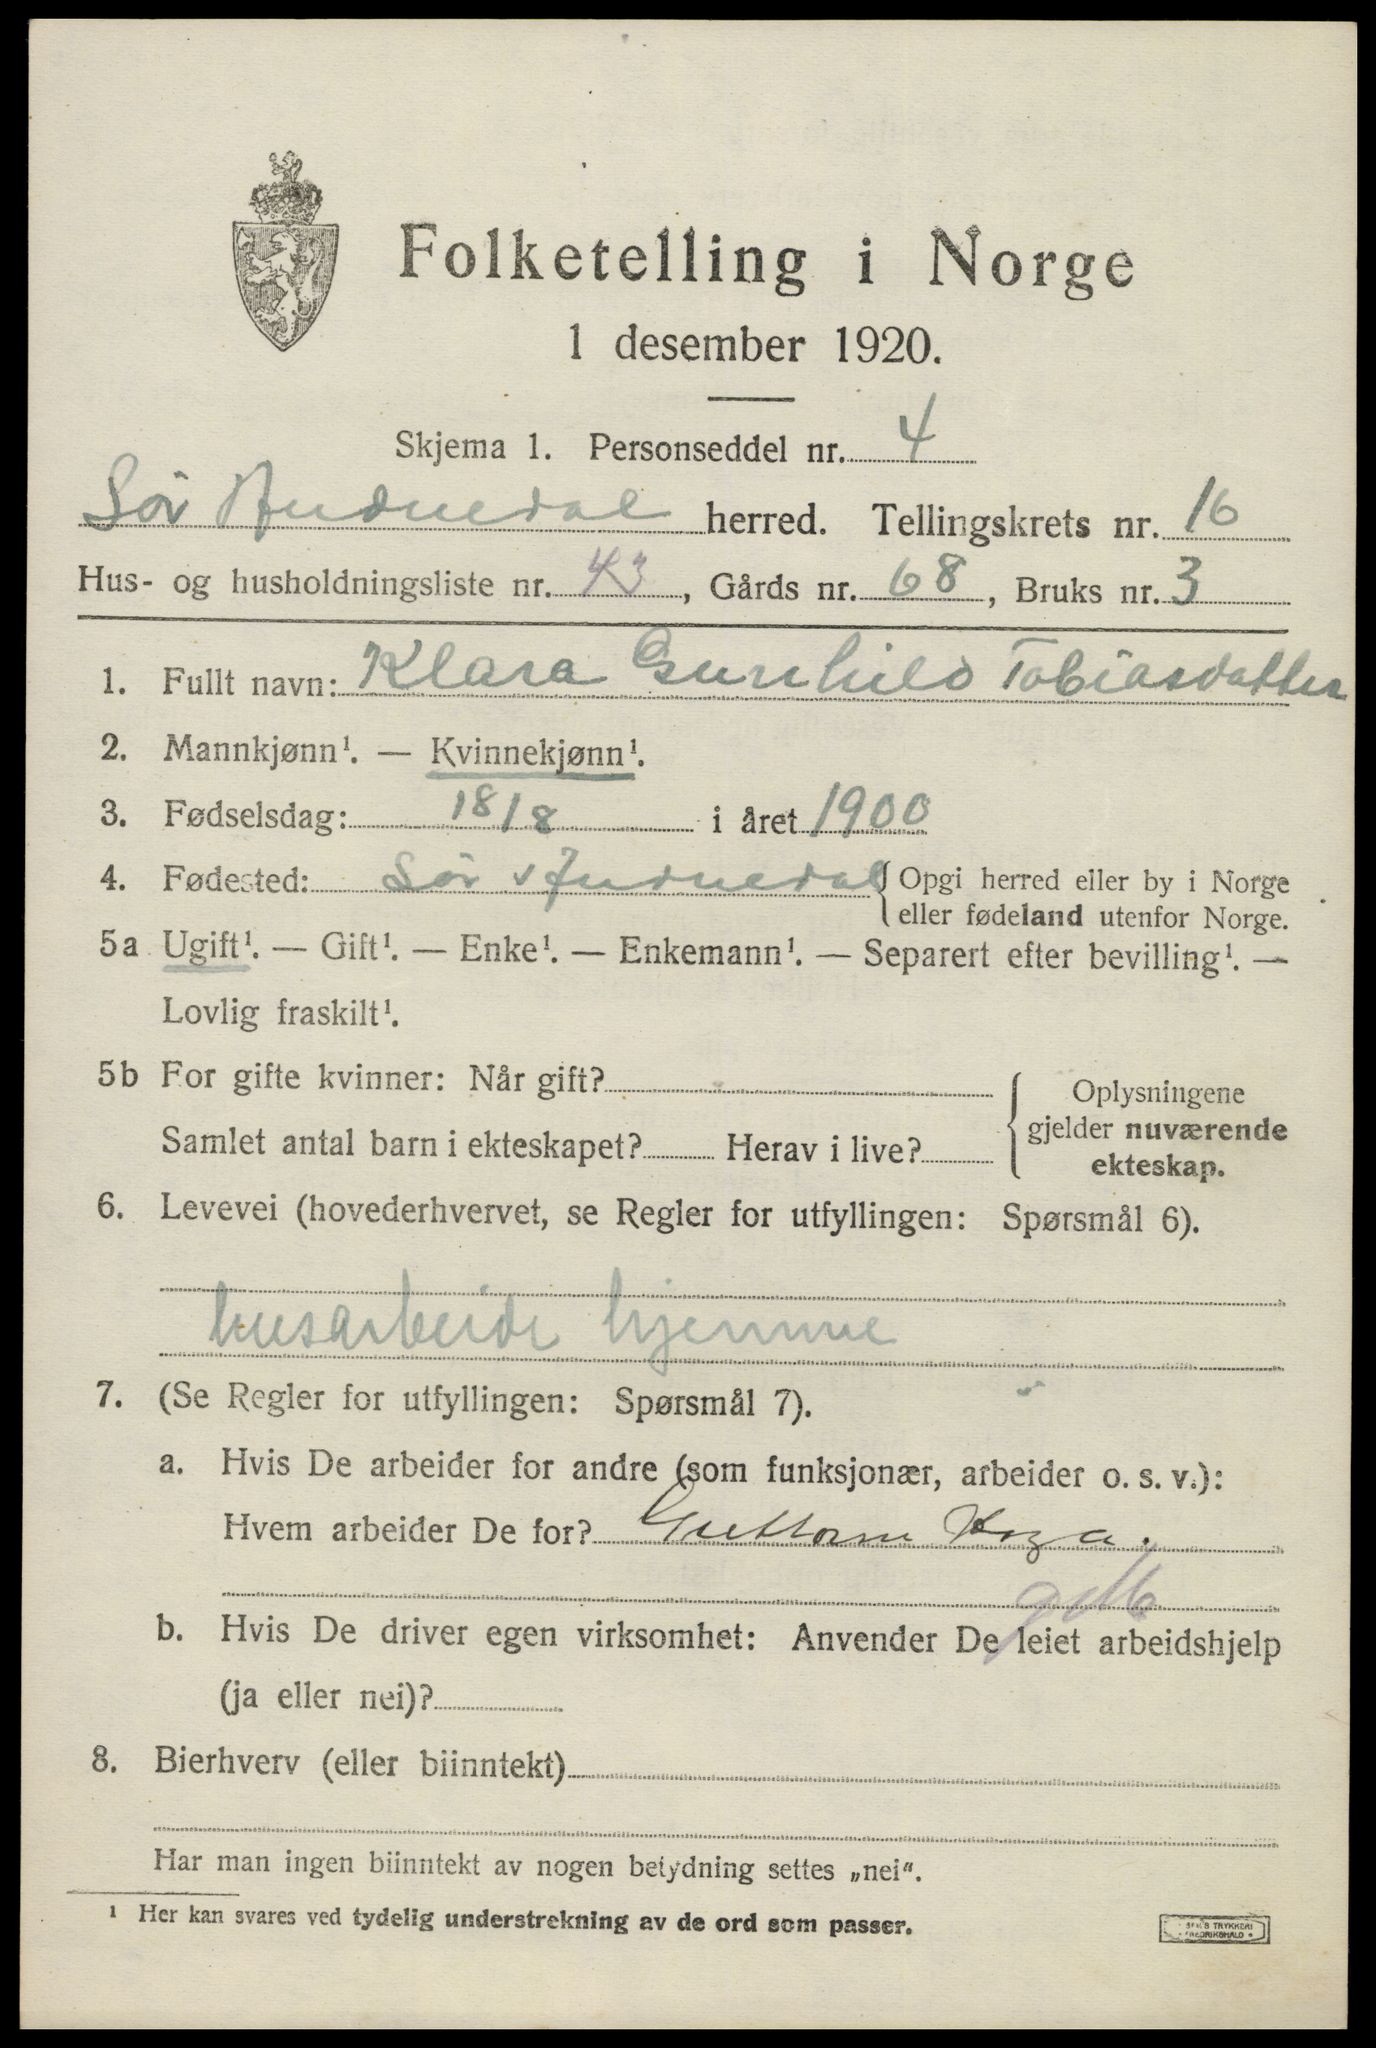 Folketelling i Norge
1 desember 1920.
Skjema 1. Personseddel nr. 4
Sør Audnedal herred. Tellingskrets nr. 16
Hus- og husholdningsliste nr. 43, Gårds nr. 68, Bruks nr. 3
1. Fullt navn: Klara Gunhild Tobiasdatter
2. Mannkjønn¹. — Kvinnekjønn¹.
3. Fødselsdag: 18/8 i året 1900
4. Fødested: Sør Audnedal { Opgi herred eller by i Norge
eller fødeland utenfor Norge.
5a Ugift¹. — Gift¹. — Enke¹. — Enkemann¹. — Separert efter bevilling¹. —
Lovlig fraskilt¹.
5b For gifte kvinner: Når gift?
Samlet antal barn i ekteskapet? Herav i live?
{ Oplysningene
gjelder nuværende
ekteskap.
6. Levevei (hovederhvervet, se Regler for utfyllingen: Spørsmål 6).
husarbeide hjemme
7. (Se Regler for utfyllingen: Spørsmål 7).
a. Hvis De arbeider for andre (som funksjonær, arbeider o. s. v.):
Hvem arbeider De for? Guttorm
b. Hvis De driver egen virksomhet: Anvender De leiet arbeidshjelp
(ja eller nei)?
8. Bierhverv (eller biinntekt)
Har man ingen biinntekt av nogen betydning settes „nei“.
¹ Her kan svares ved tydelig understrekning av de ord som passer.
TRYKKERI
FREDRIKSHALD